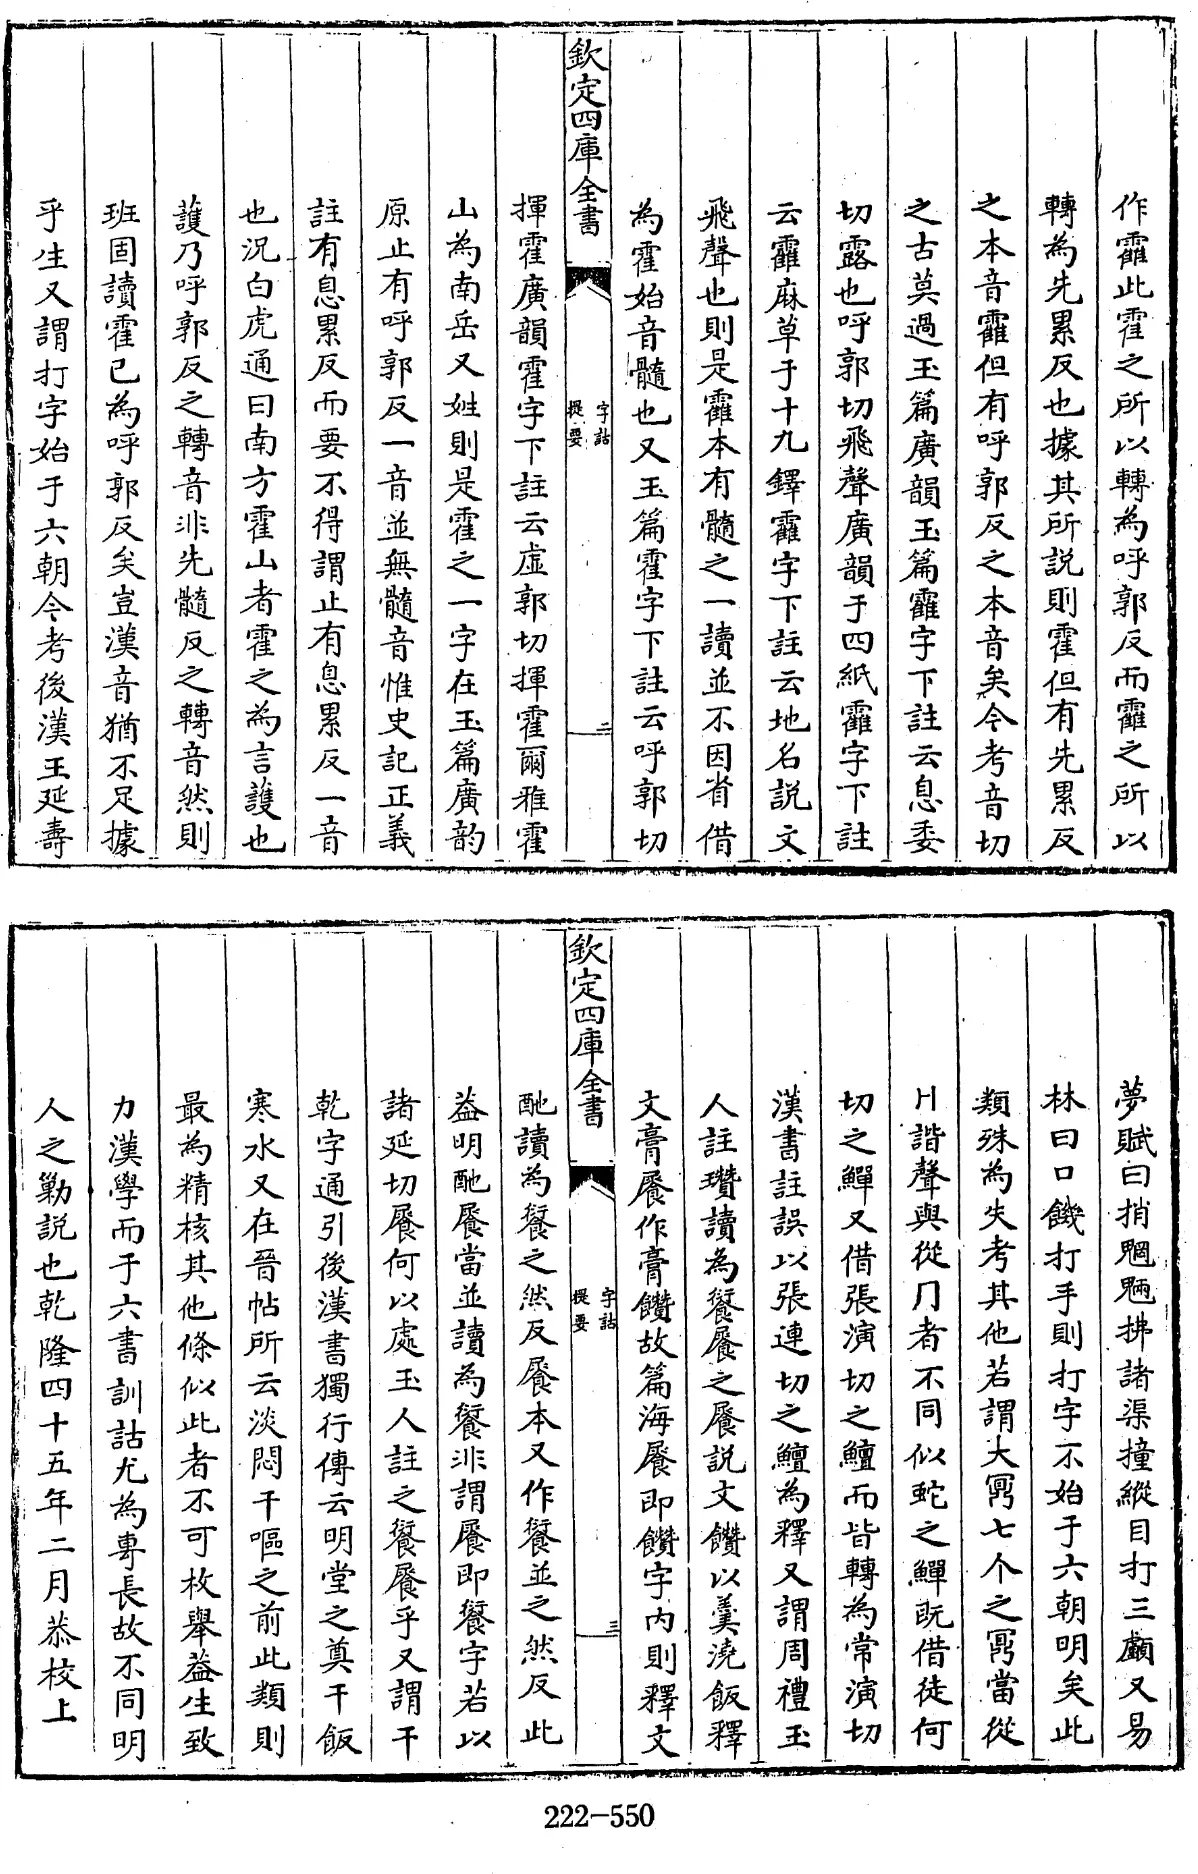 作靃此霍之所以轉為呼郭反而靃之所以
轉為先累反也據其所説則霍但有先累反
之本音靃但有呼郭反之本音矣今考音切
之古莫過玉篇廣韻玉篇靃字下註云息委
切露也呼郭切飛聲廣韻于四紙靃字下註
云靃麻草于十九鐸靃字下註云地名説文
飛聲也則是靃本有髓之一讀並不因省借
為霍始音髓也又玉篇霍字下註云呼郭切
欽定四庫全書
字詁
提要
二
揮霍廣韻霍字下註云虛郭切揮霍爾雅霍
山為南岳又姓則是霍之一字在玉篇廣韵
原止有呼郭反一音並無髓音惟史記正義
註有息累反而要不得謂止有息累反一音
也況白虎通曰南方霍山者霍之為言護也
護乃呼郭反之轉音非先髓反之轉音然則
班固讀霍已為呼郭反矣豈漢音猶不足據
乎生又謂打字始于六朝今考後漢王延壽
夢賦曰捎魍魎拂諸渠撞縱目打三顱又易
林曰口饑打手則打字不始于六朝明矣此
類殊為失考其他若謂大扃七个之扃當從
片諧聲與從冂者不同似蛇之鱓既借徒何
切之鱓又借張演切之鱣而皆轉為常演切
漢書註誤以張連切之鱣為釋又謂周禮玉
人註瓚讀為餐餍之餍説文饡以羹澆飯釋
文膏餍作膏饡故篇海餍即饡字内則釋文
欽定四庫全書
字詁
提要
三
酏讀為餐之然反餍本又作餐並之然反此
益明酏餍當並讀為餐非謂餍即餐字若以
諸延切餍何以處玉人註之餐餍乎又謂干
乾字通引後漢書獨行傳云明堂之奠干飯
寒水又在晉帖所云淡悶干嘔之前此類則
最為精核其他條似此者不可枚舉蓋生致
力漢學而于六書訓詁尤為專長故不同明
人之勦説也乾隆四十五年二月恭校上
222-550